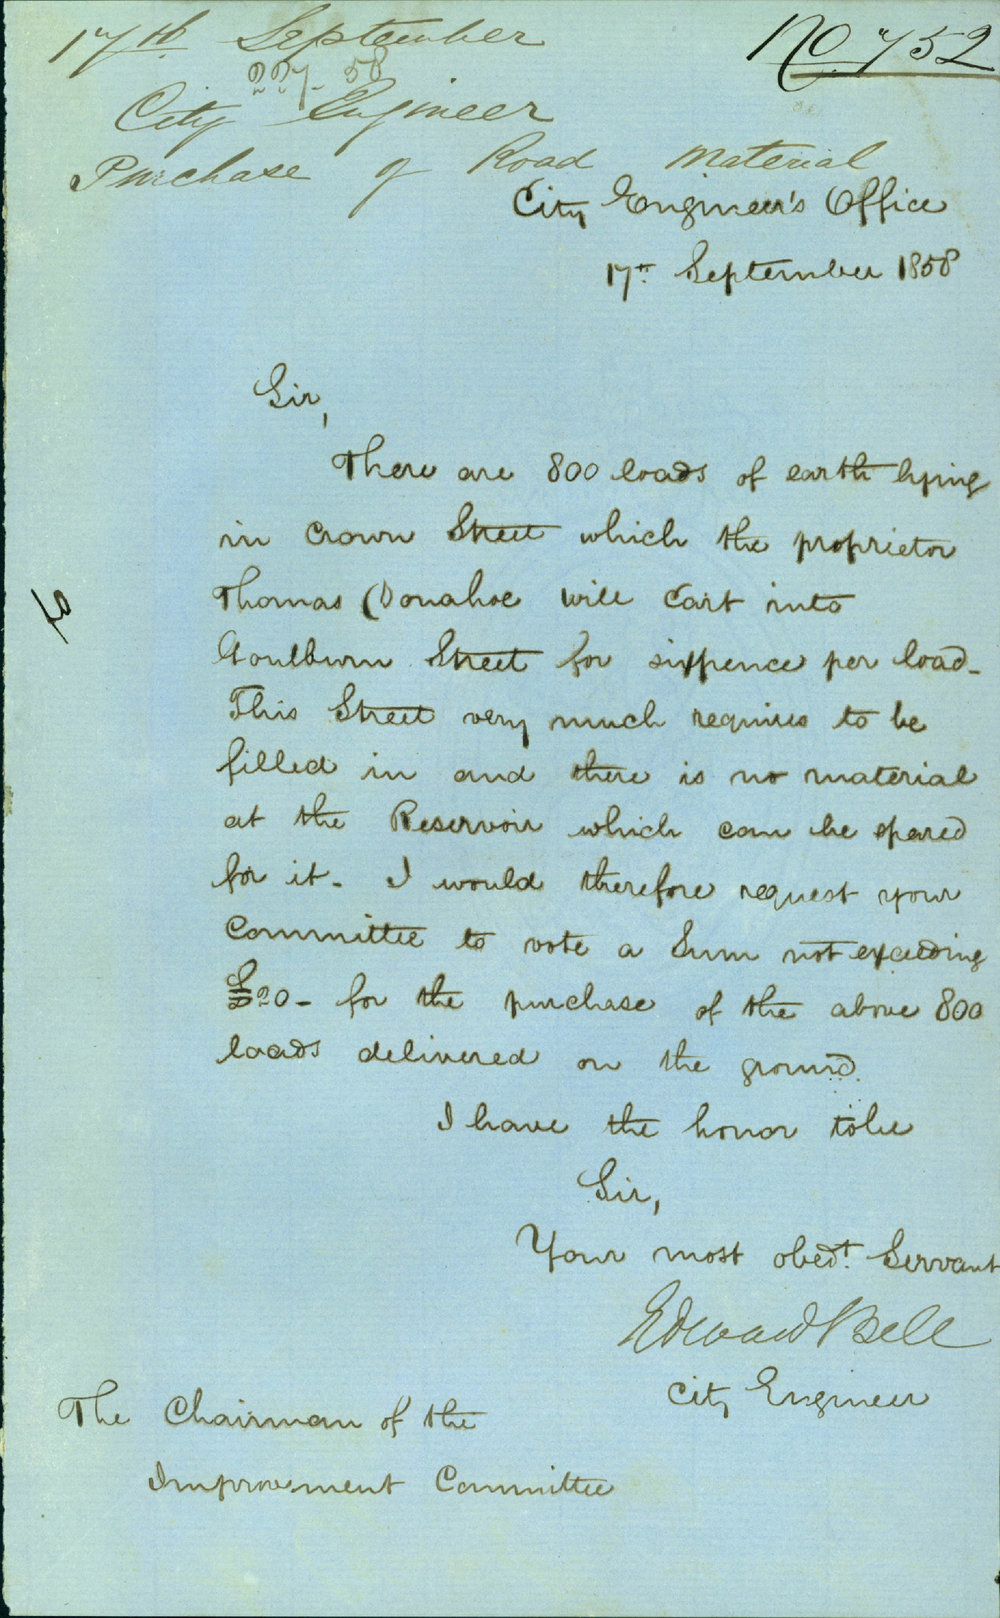 17th September
No 752
227. 58
City Engineer
Purchase of Road Material
City Engineer's Office
17th September 1858
Sir,
There are 800 loads of earth lying
in Crown Street which the proprietor
Thomas Donahoe will Cart into
Goulburn Street for sixpence per load_
This Street very much requires to be
filled in and there is no material
at the Reservoir which can be spared
for it_ I would therefore request your
Committee to vote a Sum not exceeding
£20_ for the purchase of the above 800
loads delivered on the ground
I have the honor to be
Sir,
Your most obedt. Servant
Edward Bell
City Engineer
The Chairman of the
Improvement Committee